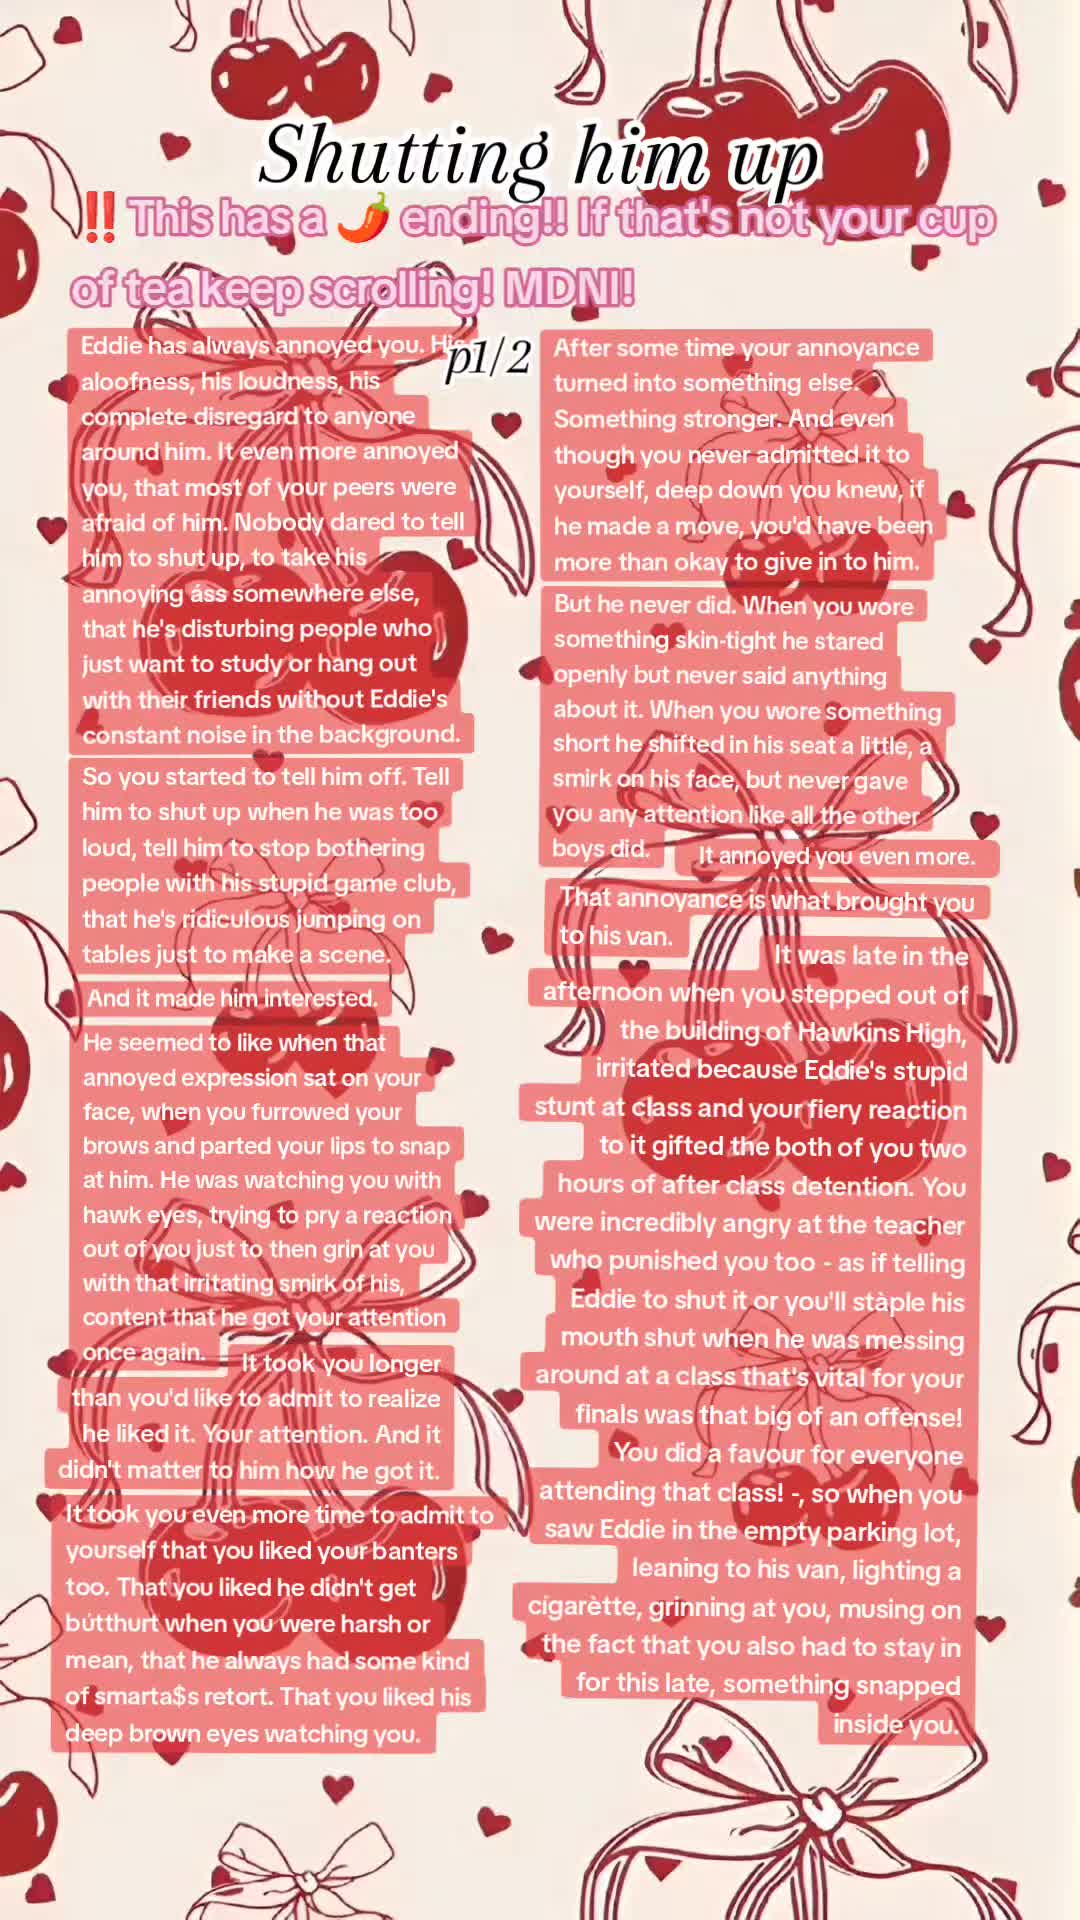 Shutting him up
‼️This has a 🌶️ ending!! If that's not your cup
of tea keep scrolling! MDNI!
p1/2
Eddie has always annoyed you. His
aloofness, his loudness, his
complete disregard to anyone
around him. It even more annoyed
you, that most of your peers were
afraid of him. Nobody dared to tell
him to shut up, to take his
annoying áss somewhere else,
that he's disturbing people who
just want to study or hang out
with their friends without Eddie's
constant noise in the background.
So you started to tell him off. Tell
him to shut up when he was too
loud, tell him to stop bothering
people with his stupid game club,
that he's ridiculous jumping on
tables just to make a scene.
And it made him interested.
He seemed to like when that
annoyed expression sat on your
face, when you furrowed your
brows and parted your lips to snap
at him. He was watching you with
hawk eyes, trying to pry a reaction
out of you just to then grin at you
with that irritating smirk of his,
content that he got your attention
once again.
It took you longer
than you'd like to admit to realize
he liked it. Your attention. And it
didn't matter to him how he got it.
It took you even more time to admit to
yourself that you liked your banters
too. That you liked he didn't get
bútthurt when you were harsh or
mean, that he always had some kind
of smarta$s retort. That you liked his
deep brown eyes watching you.
After some time your annoyance
turned into something else.
Something stronger. And even
though you never admitted it to
yourself, deep down you knew, if
he made a move, you'd have been
more than okay to give in to him.
But he never did. When you wore
something skin-tight he stared
openly but never said anything
about it. When you wore something
short he shifted in his seat a little, a
smirk on his face, but never gave
you any attention like all the other
boys did.
It annoyed you even more.
That annoyance is what brought you
to his van.
It was late in the
afternoon when you stepped out of
the building of Hawkins High,
irritated because Eddie's stupid
stunt at class and your fiery reaction
to it gifted the both of you two
hours of after class detention. You
were incredibly angry at the teacher
who punished you too - as if telling
Eddie to shut it or you'll stàple his
mouth shut when he was messing
around at a class that's vital for your
finals was that big of an offense!
You did a favour for everyone
attending that class! -, so when you
saw Eddie in the empty parking lot,
leaning to his van, lighting a
cígarètte, grinning at you, musing on
the fact that you also had to stay in
for this late, something snapped
inside you.